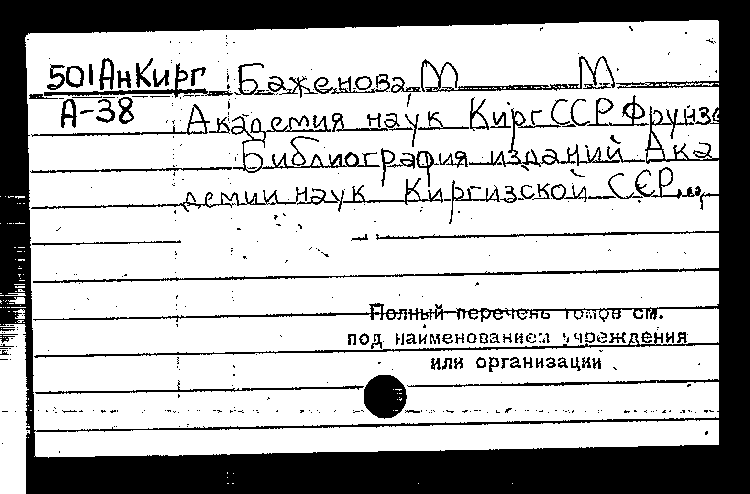 501АнКирг Баженова М М
А-38 Академия наук КиргССР Фрунзе
Библиография изданий Ака
демии наук Киргизской ССР...
Полный перечень томов см.
под наименованием учреждения
или организации